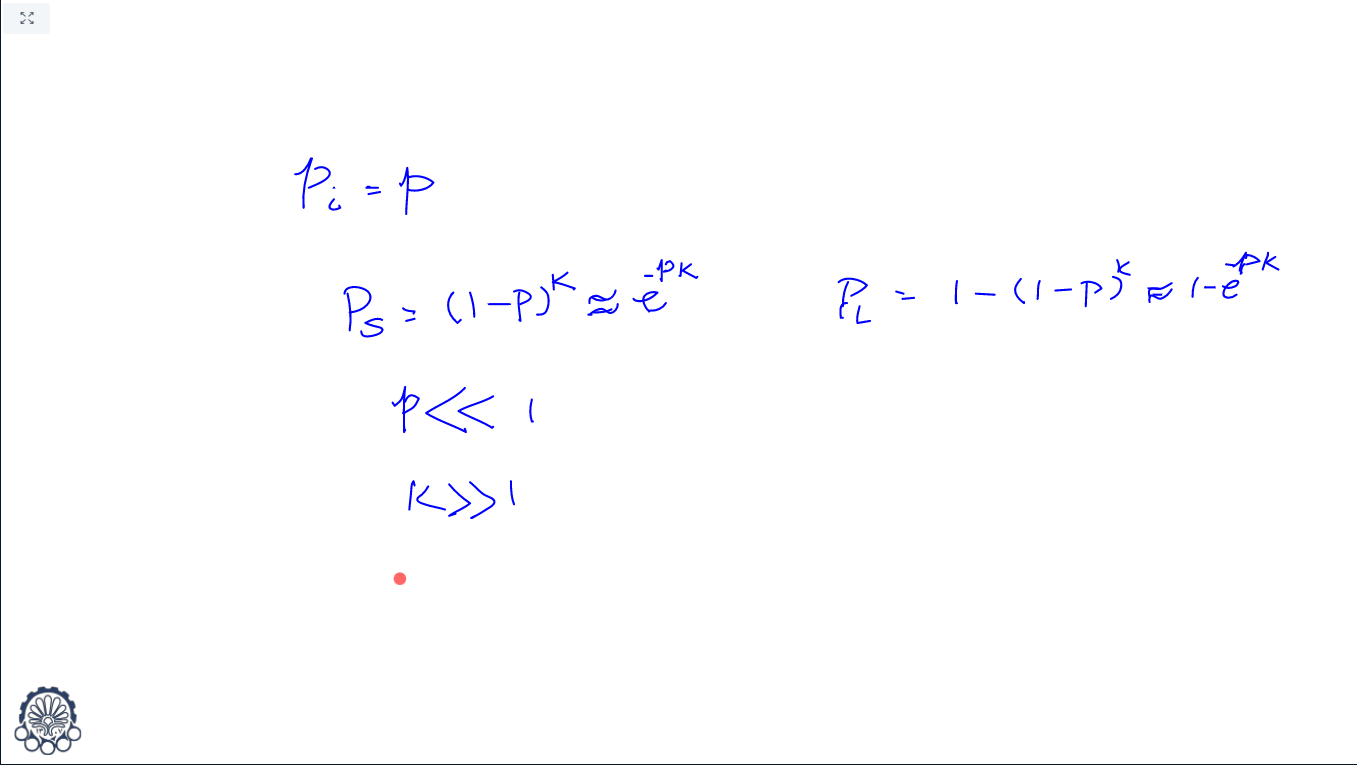 p_i = p
P_S = (1-p)^K ≈ e^{-pK}
P_L = 1-(1-p)^K ≈ 1-e^{-pK}
p << 1
K >> 1